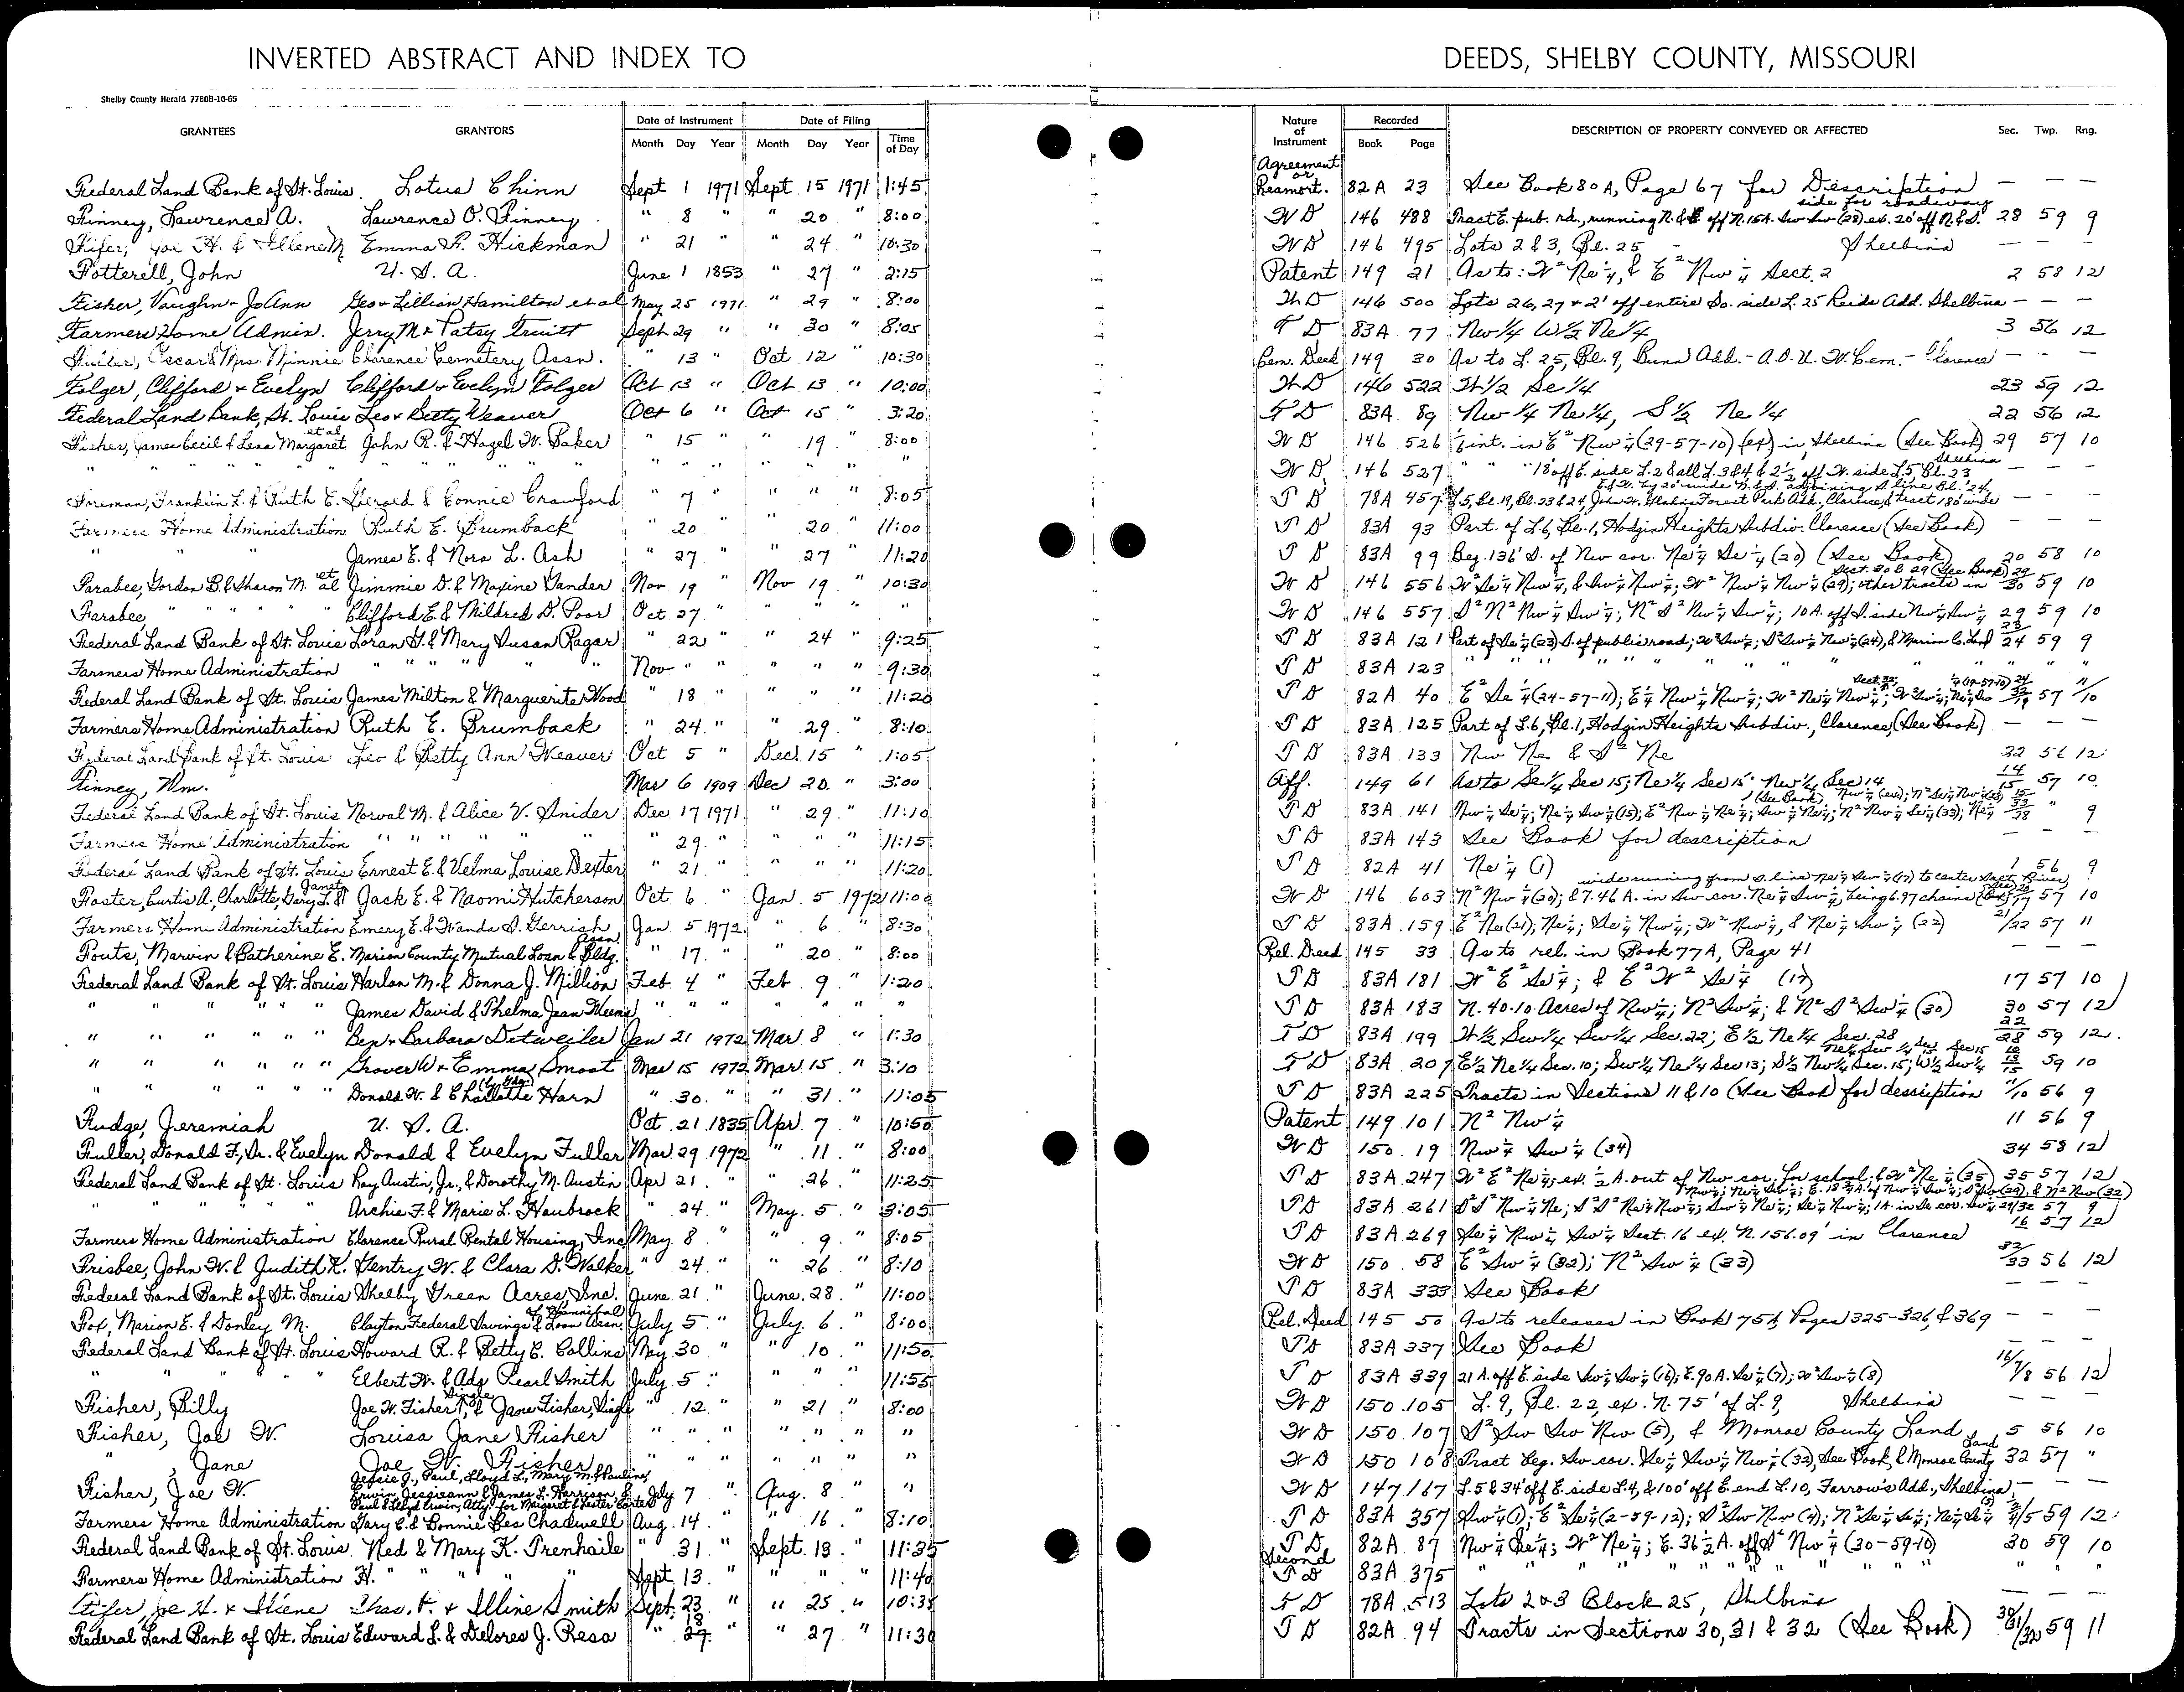 INVERTED ABSTRACT AND INDEX TO DEEDS, SHELBY COUNTY, MISSOURI
Shelby County Herald 7780B-10-65
GRANTEES GRANTORS Date of Instrument Month Day Year Date of Filing Month Day Year Time of Day Nature of Instrument Recorded Book Page DESCRIPTION OF PROPERTY CONVEYED OR AFFECTED Sec. Twp. Rng.
Federal Land Bank of St. Louis Lotus Chinn Sept 1 1971 Sept 15 1971 1:45 Agreement or Reamort. 82A 23 See Book 80A, Page 67 for Description — — —
Finney, Lawrence A. Lawrence O. Finney " 8 " " 20 " 8:00 WD 146 488 Tract E. pub. rd., running N. & off N. 15A. Sw Sw (28) ex. 20' off N. & S. side for roadway 28 59 9
Fifer, Joe H. & Illene M Emma F. Hickman " 21 " " 24 " 10:30 WD 146 495 Lots 2 & 3, Bl. 25 - Shelbina — — —
Fotterell, John U. S. A. June 1 1853 " 27 " 2:15 Patent 149 21 As to: W² Ne ¼, & E² Nw ¼ Sect. 2 2 58 12
Fisher, Vaughn - JoAnn Geo + Lillian Hamilton et al May 25 1971 " 29 " 8:00 WD 146 500 Lots 26, 27 + 2' off entire So. side L. 25 Reids Add. Shelbina — — —
Farmers Home Admin. Jerry M + Patsy Truitt Sept 29 " " 30 " 8:05 TD 83A 77 Nw 1/4 W 1/2 Ne 1/4 3 56 12
Fuller, Oscar & Mrs. Minnie Clarence Cemetery Assn. " 13 " Oct 12 " 10:30 Cem. Deed 149 30 As to L. 25, Bl. 9, Bunn Add. - A.O.U.W. Cem. - Clarence — — —
Folger, Clifford + Evelyn Clifford + Evelyn Folger Oct 13 " Oct 13 " 10:00 WD 146 522 W 1/2 Se 1/4 23 59 12
Federal Land Bank, St. Louis Leo + Betty Weaver Oct 6 " Oct 15 " 3:20 TD 83A 89 Nw 1/4 Ne 1/4, S 1/2 Ne 1/4 22 56 12
Fisher, James Cecil & Lena Margaret et al John R. & Hazel W. Baker " 15 " " 19 " 8:00 WD 146 526 int. in E² Nw ¼ (29-57-10) in Shelbina (See Book) 29 57 10
" " " " " " " " " " WD 146 527 " " 18' off E. side L. 2 & all L. 3 & 4 & 2½ off W. side L. 5 Bl. 23 Shelbina — — —
Foreman, Franklin L. & Ruth E. Gerald & Connie Crawford " 7 " " " " 8:05 TD 78A 457 L. 5, Bl. 19, Bl. 23 & 24, Forest Park Add., Clarence, & tract 180' wide E. & W. by 20' wide N. & S. adjoining S. line Bl. 24 — — —
Farmers Home Administration Ruth E. Brumback " 20 " " 20 " 11:00 TD 83A 93 Part of L. 6, Bl. 1, Hodgin Heights Subdiv. Clarence (See Book) — — —
" " " James E. & Nora L. Ash " 27 " " 27 " 11:20 TD 83A 99 Beg. 136' S. of Nw cor. Ne ¼ Se ¼ (20) (See Book) 20 58 10
Farabee, Gordon B. & Sharon M. et al Jimmie D. & Maxine Vander Nov 19 " Nov 19 " 10:30 WD 146 556 W² Se ¼ Nw ¼, & Sw ¼ Nw ¼; W² Nw ¼ Nw ¼ (29); other tracts in Sect. 30 & 29 (See Book) 29/30 59 10
Farabee, " " " " Clifford E. & Mildred D. Poor Oct. 27 " " " " " WD 146 557 S² N² Nw ¼ Sw ¼; N² S² Nw ¼ Sw ¼; 10 A. off S. side Nw ¼ Sw ¼ 29 59 10
Federal Land Bank of St. Louis Loran G. & Mary Susan Ragar " 22 " " 24 " 9:25 TD 83A 121 Part of Se ¼ (23) S. of public road; W² Sw ¼; S² Sw ¼ Nw ¼ (24), & Marion C. Land 23/24 59 9
Farmers Home Administration " " " " " Nov " " " " " 9:30 TD 83A 123 " " " " " " " " " " "
Federal Land Bank of St. Louis James Milton & Marguerite Wood " 18 " " " " 11:20 TD 82A 40 E² Se ¼ (24-57-11); E ¼ Nw ¼ Nw ¼; W² Ne ¼ Nw ¼; W² Sw ¼; 57 11/10
Farmers Home Administration Ruth E. Brumback " 24 " " 29 " 8:10 TD 83A 125 Part of L. 6, Bl. 1, Hodgin Heights Subdiv., Clarence, (See Book) — — —
Federal Land Bank of St. Louis Leo & Betty Ann Weaver Oct 5 " Dec. 15 " 1:05 TD 83A 133 Nw Ne & S² Ne 22 56 12
Finney, Wm. Mar 6 1909 Dec 20 " 3:00 Aff. 149 61 As to Se 1/4 Sec 15; Ne 1/4 Sec 15 Nw 1/4 Sec 14 14/15 57 10
Federal Land Bank of St. Louis Norval M. & Alice V. Snider Dec 17 1971 " 29 " 11:10 TD 83A 141 Nw ¼ Se ¼; Ne ¼ Sw ¼ (15); E² Nw ¼ Ne ¼; Sw ¼ Ne ¼; N² Nw ¼ Se ¼ (33); (See Book) " 9
Farmers Home Administration " " " " " " 29 " " " " 11:15 TD 83A 143 See Book for description — — —
Federal Land Bank of St. Louis Ernest E. & Velma Louise Dexter " 21 " " " " 11:20 TD 82A 41 Ne ¼ (1) 1 56 9
Foster, Curtis A., Charlotte, Gary L. & Janet Jack E. & Naomi Hutcherson Oct. 6 " Jan 5 1972 11:00 WD 146 603 N² Nw ¼ (20); & 7.46 A. in Sw cor. Ne ¼ Sw ¼, being 6.97 chains wide running from S. line Ne ¼ Sw ¼ (17) to center Salt River 57 10
Farmers Home Administration Emery E. & Wanda S. Gerrish Jan. 5 1972 " 6 " 8:30 TD 83A 159 E² Ne (21); Ne ¼; Se ¼ Nw ¼; W² Nw ¼, & Ne ¼ Sw ¼ (22) 21/22 57 11
Fouts, Marvin & Catherine E. Marion County Mutual Loan & Bldg. Assn. " 17 " " 20 " 8:00 Rel. Deed 145 33 As to rel. in Book 77A, Page 41 — — —
Federal Land Bank of St. Louis Harlan M. & Donna J. Million Feb. 4 " Feb. 9 " 1:20 TD 83A 181 W² E² Se ¼; & E² W² Se ¼ (17) 17 57 10
" " " " " " James David & Thelma Jean Weems " " " " " " " TD 83A 183 N. 40.10 Acres of Nw ¼; N² Sw ¼; & N² S² Sw ¼ (30) 30 57 12
" " " " " " Ben + Barbara Detweiler Jan 21 1972 Mar. 8 " 1:30 TD 83A 199 W 1/2 Sw 1/4 Sw 1/4 Sec. 22; E 1/2 Ne 1/4 Sec. 28 22/28 59 12
" " " " " " Grover W + Emma Smoot Mar 15 1972 Mar. 15 " 3:10 TD 83A 207 E 1/2 Ne 1/4 Sec. 10; Sw 1/4 Ne 1/4 Sec 13; S 1/2 Nw 1/4 Sec. 15; W 1/2 Sw 1/4 59 10
" " " " " " Donald W. & Charlotte Harn " 30 " " 31 " 11:05 TD 83A 225 Tracts in Sections 11 & 10 (See Book) for description 11/10 56 9
Fudge, Jeremiah U. S. A. Oct. 21 1835 Apr. 7 " 10:50 Patent 149 101 N² Nw ¼ 11 56 9
Fuller, Donald F., Sr. & Evelyn Donald & Evelyn Fuller Mar. 29 1972 " 11 " 8:00 WD 150 19 Nw ¼ Sw ¼ (34) 34 58 12
Federal Land Bank of St. Louis Ray Austin, Jr., & Dorothy M. Austin Apr. 21 " " 26 " 11:25 TD 83A 247 W² E² Ne ¼; ex. ½ A. out of Nw cor. for school; & W² Ne ¼ (35) 35 57 12
" " " " " Archie F. & Marie L. Haubrock " 24 " May 5 " 3:05 TD 83A 261 S² S² Nw ¼ Ne; S² S² Ne ¼ Nw ¼; Sw ¼ Ne ¼; Se ¼ Nw ¼; 1 A. in Se cor. 29/32 57 9
Farmers Home Administration Clarence Rural Rental Housing, Inc May 8 " " 9 " 8:05 TD 83A 269 Se ¼ Nw ¼ Sw ¼ Sect. 16 ex. N. 156.09' in Clarence 16 57 12
Frisbee, John W. & Judith K. Gentry W. & Clara D. Walker " 24 " " 26 " 8:10 WD 150 58 E² Sw ¼ (32); N² Sw ¼ (33) 32/33 56 12
Federal Land Bank of St. Louis Shelby Green Acres, Inc. June 21 " June 28 " 11:00 TD 83A 333 See Book — — —
Fox, Marion E. & Donley M. Clayton Federal Savings & Loan Assn. of Hannibal July 5 " July 6 " 8:00 Rel. Deed 145 50 As to releases in Book 75A, Pages 325-326, & 369 — — —
Federal Land Bank of St. Louis Howard R. & Betty C. Collins May 30 " " 10 " 11:50 TD 83A 337 See Book — — —
" " " " " Elbert W. & Ada Pearl Smith July 5 " " " " 11:55 TD 83A 339 21 A. off E. side Sw ¼ Sw ¼ (16); E. 90 A. Se ¼ (7); W² Sw ¼ (8) 16/7/8 56 12
Fisher, Billy Joe W. Fisher, Single & Jane Fisher, Single " 12 " " 21 " 8:00 WD 150 105 L. 9, Bl. 22, ex. N. 75' of L. 9, Shelbina — — —
Fisher, Joe W. Louisa Jane Fisher " " " " " " " WD 150 107 S² Sw Sw Nw (5), & Monroe County Land 5 56 10
" , Jane Joe W. Fisher " " " " " " " WD 150 108 Tract beg. Sw cor. Se ¼ Sw ¼ Nw ¼ (32), See Book, & Monroe County Land 32 57 "
Fisher, Joe W. Jessie J., Paul, Lloyd L., Mary M. & Pauline Erwin, Jessieann & James L. Harrison, & Paul & Lloyd Erwin, Atty. for Margaret & Lester Carter July 7 " Aug. 8 " " WD 147 167 L. 5 & 34' off E. side L. 4, & 100' off E. end L. 10, Farrow's Add., Shelbina — — —
Farmers Home Administration Gary C. & Bonnie Bes Chadwell Aug. 14 " " 16 " 8:10 TD 83A 357 Sw ¼ (1); E² Se ¼ (2-59-12); S² Sw Nw (4); N² Se ¼ Se ¼; Ne ¼ Se ¼ 59 12
Federal Land Bank of St. Louis Ned & Mary K. Trenhaile " 31 " Sept. 13 " 11:35 TD 82A 87 Nw ¼ Se ¼; W² Ne ¼; E. 36½ A. off S² Nw ¼ (30-59-10) 30 59 10
Farmers Home Administration H. " " " " Sept. 13 " " " " 11:40 Second TD 83A 375 " " " " " " " " " "
Fifer, Joe H. + Illene Chas. F. + Illine Smith Sept. 23 " " 25 " 10:35 TD 78A 513 Lots 2 & 3 Block 25, Shelbina — — —
Federal Land Bank of St. Louis Edward L. & Delores J. Resa " " " 27 " 11:30 TD 82A 94 Tracts in Sections 30, 31 & 32 (See Book) 30/31/32 59 11